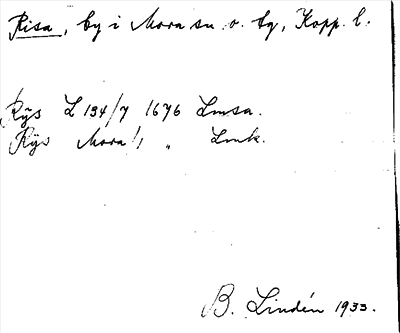 Risa, by i Mora sn. o. tg, Kopp. l.
Rÿs L 134/7 1676 Lmsa.
Rÿs Mora 1, „ Lmk.
B. Lindén 1933.